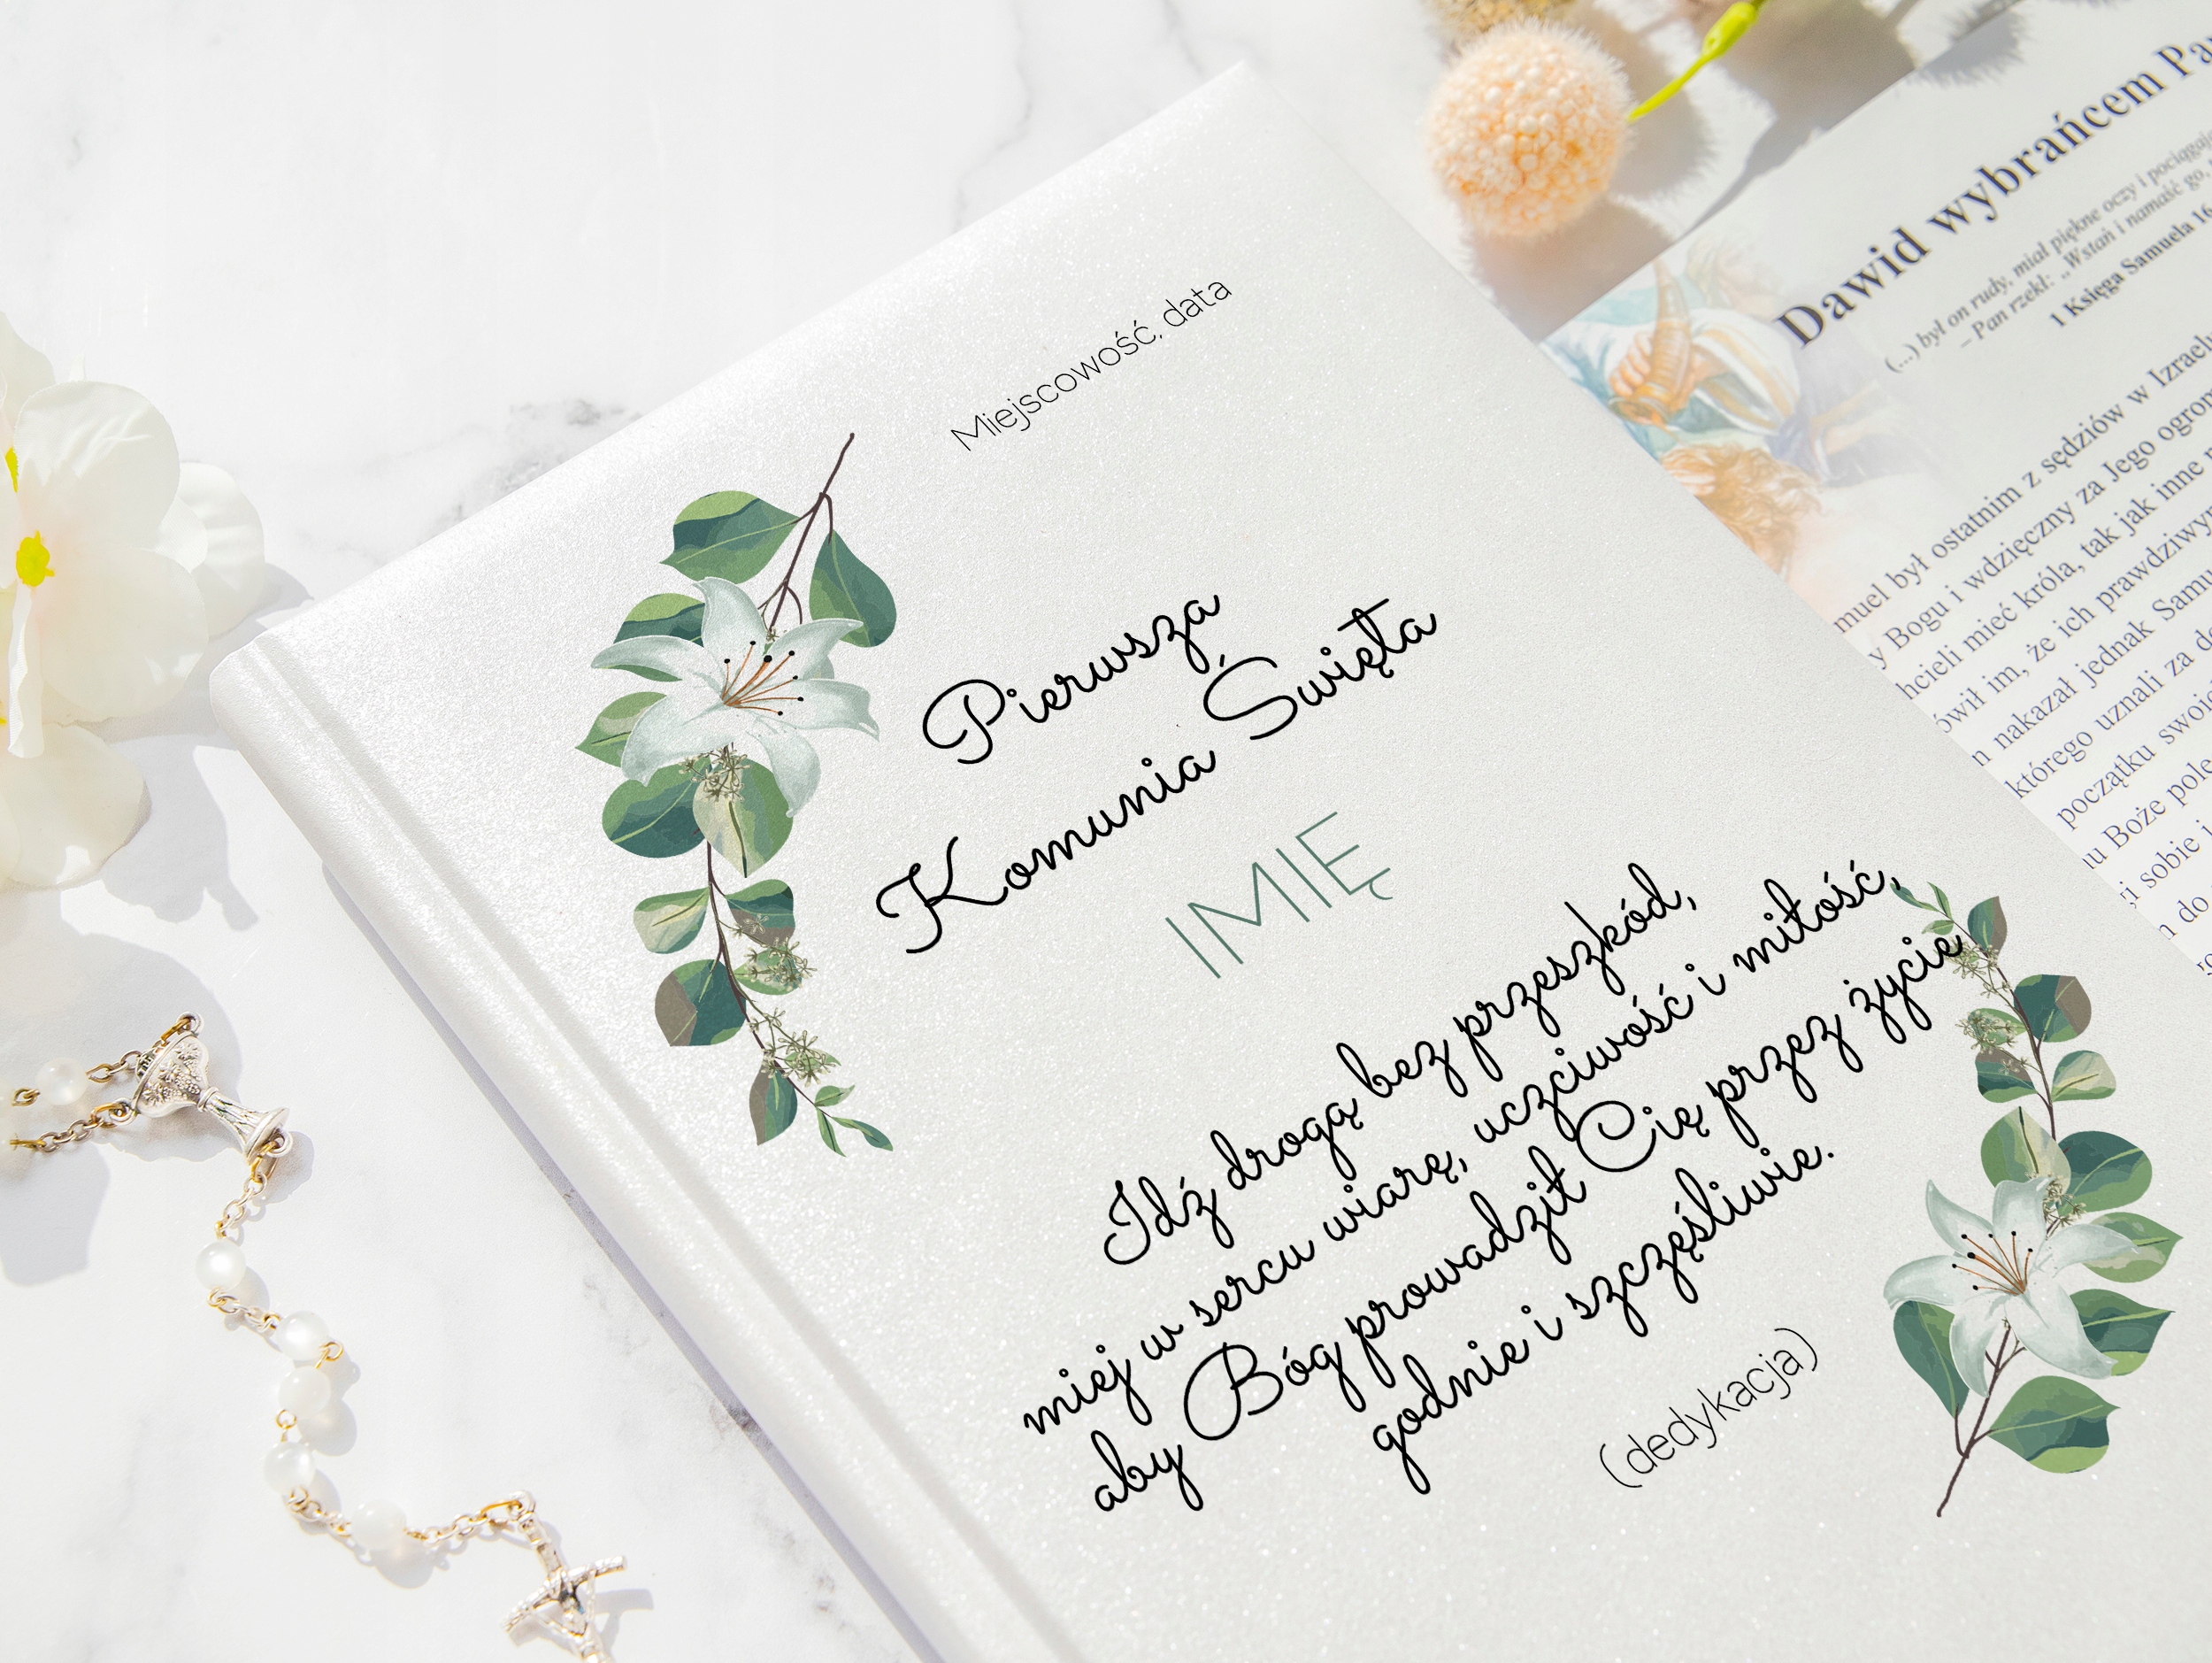 Miejscowość, data
Pierwsza
Komunia Święta
IMIĘ
Idź drogą bez przeszkód,
miej w sercu wiarę, uczciwość i miłość,
aby Bóg prowadził Cię przez życie
godnie i szczęśliwie.
(dedykacja)
Dawid wybrańcem
(...) był on rudy, miał piękne oczy i
– Pan rzekł: „Wstań i namaść go,
1 Księga Samuela 16
był ostatnim z sędziów w
Bogu i wdzięczny za Jego
mieć króla, tak jak inne
im, że ich
nakazał jednak
którego uznali za
początku
Boże
sobie
do